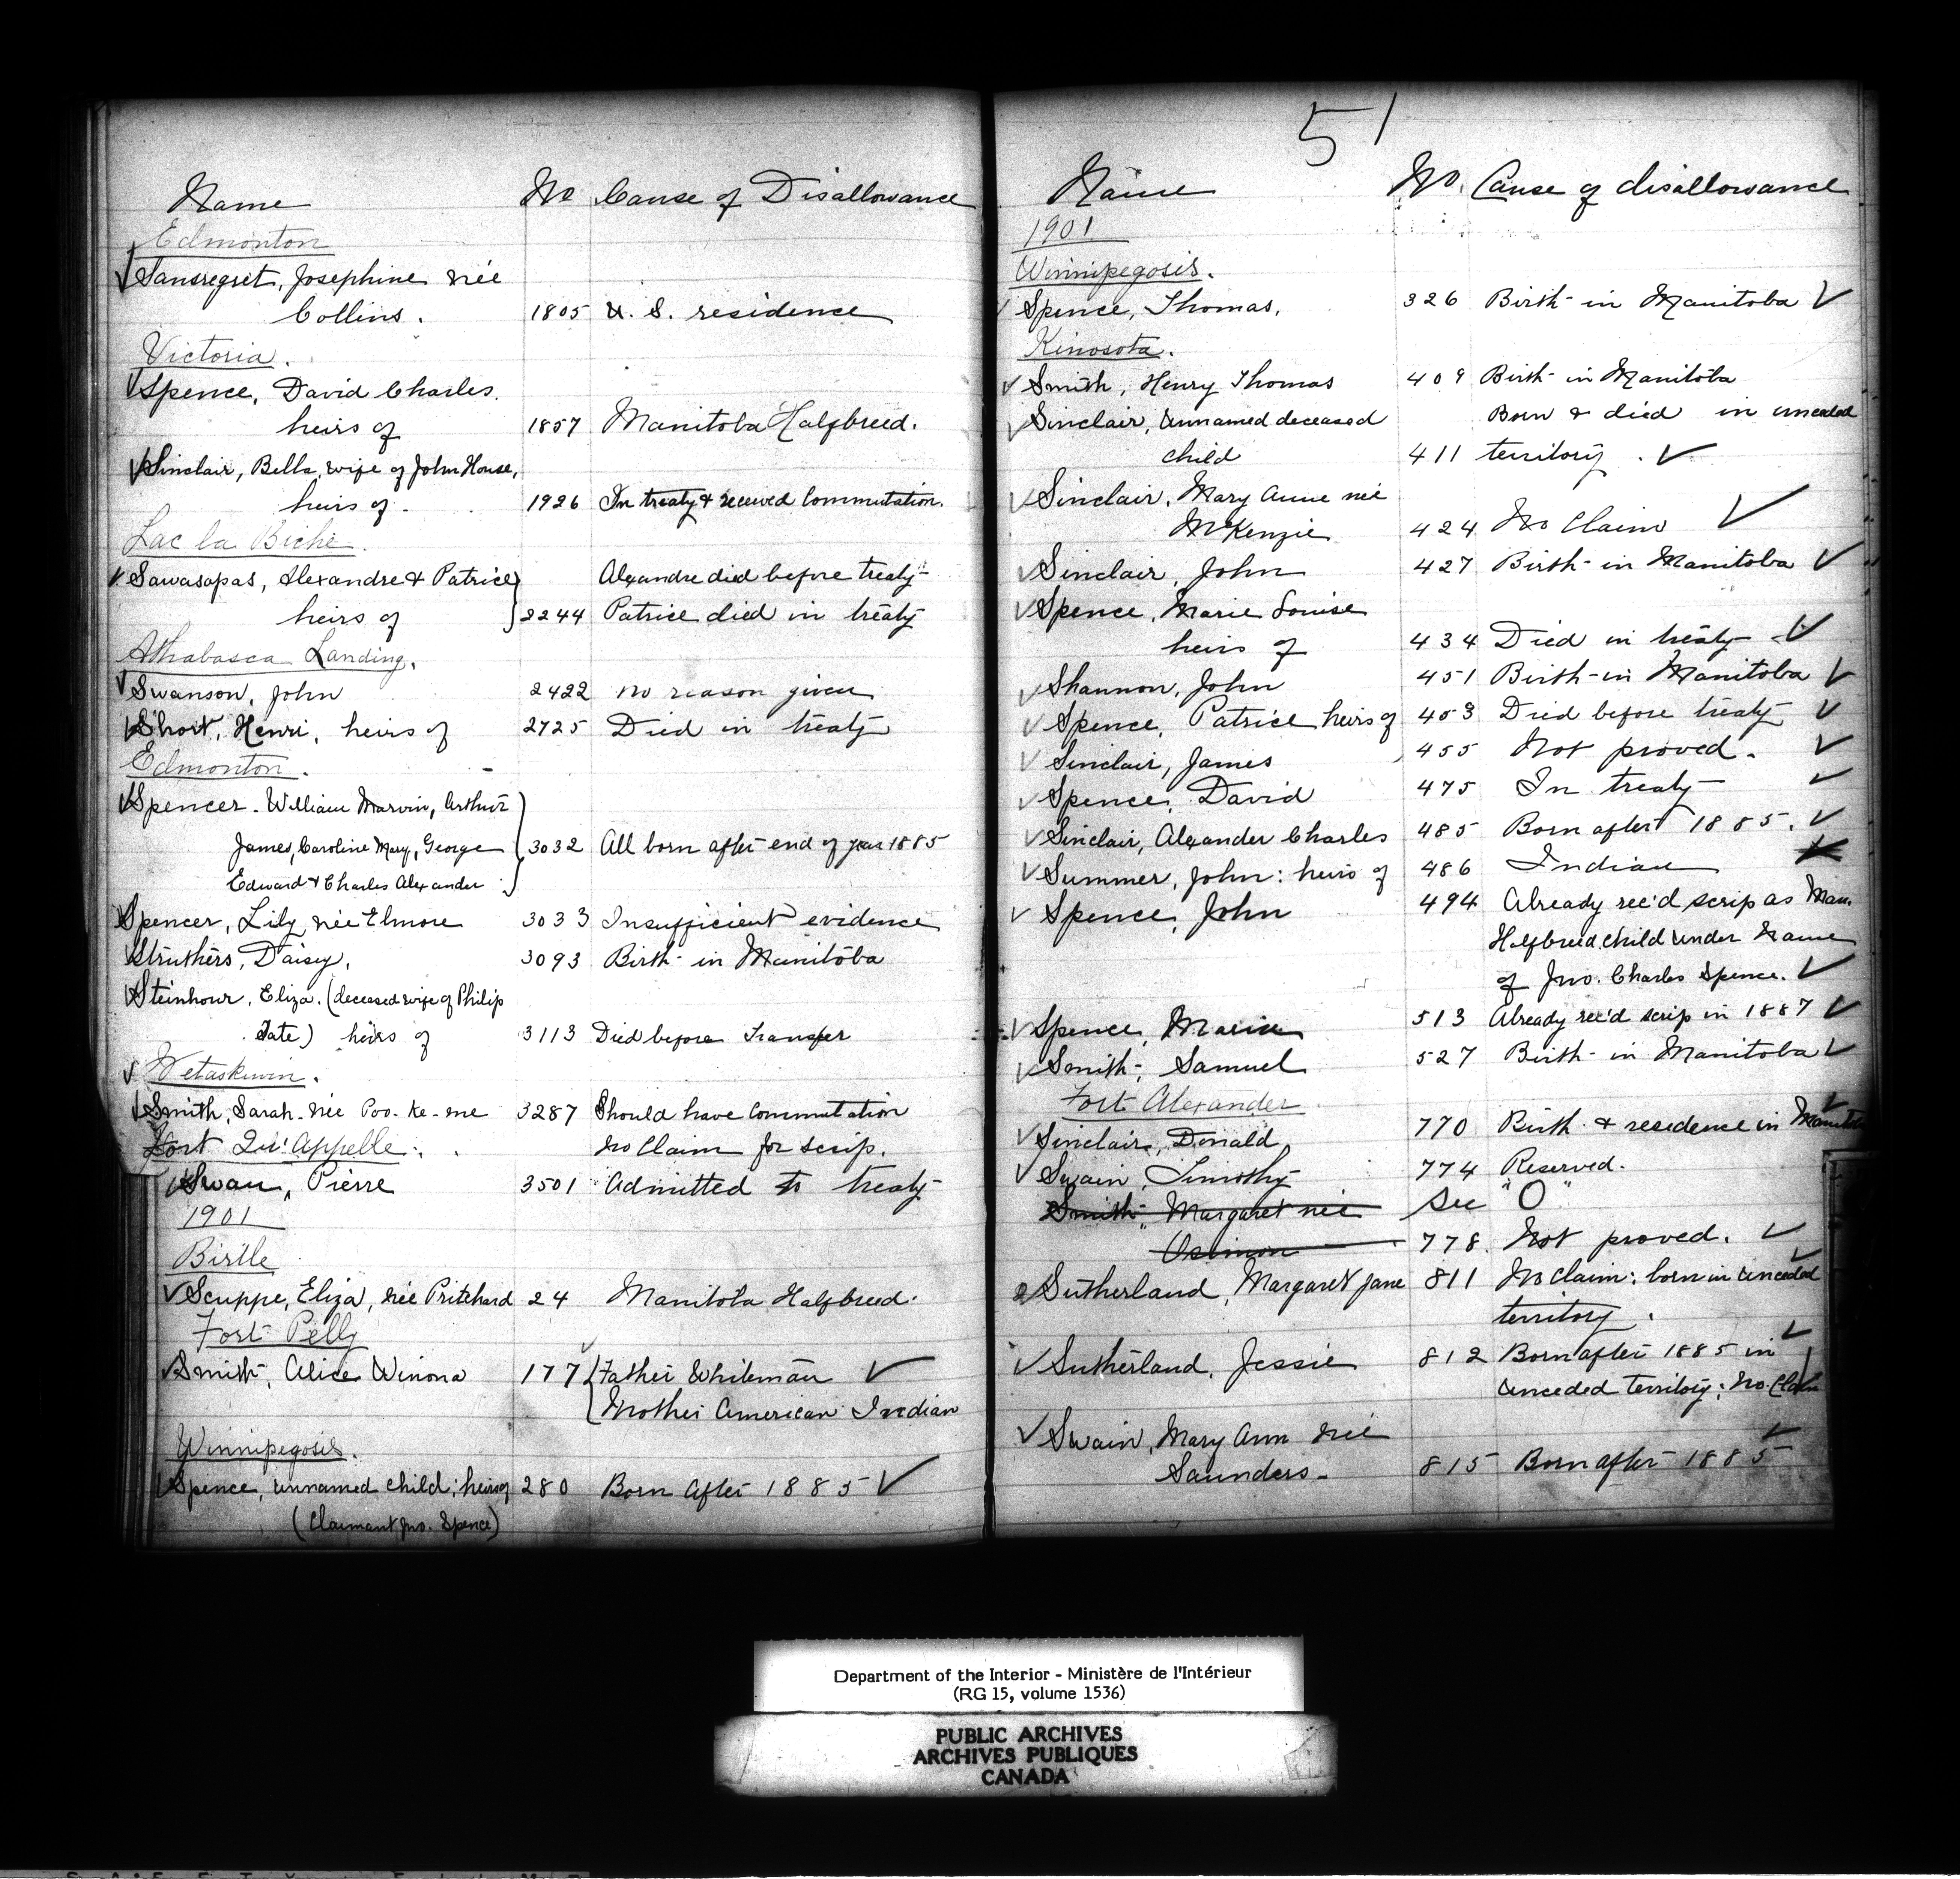 Name No Cause of Disallowance
Edmonton
Sansregret, Josephine née
Collins. 1805 U. S. residence
Victoria.
Spence, David Charles.
heirs of 1857 Manitoba Halfbreed.
Sinclair, Bella, wife of John House,
heirs of. 1926 In treaty & received Commutation.
Lac la Biche.
Sawasapas, Alexandre & Patrice Alexandre died before treaty
heirs of 2244 Patrice died in treaty
Athabasca Landing.
Swanson, John 2422 no reason given
Short, Henri, heirs of 2725 Died in treaty
Edmonton.
Spencer. William Marvin, Arthur
James, Caroline Mary, George 3032 All born after end of year 1885
Edward & Charles Alexander
Spencer, Lily née Elmore 3033 Insufficient evidence
Struthers, Daisy. 3093 Birth in Manitoba
Steinhour, Eliza. (deceased wife of Philip
Tate) heirs of 3113 Died before Transfer
Wetaskiwin.
Smith, Sarah née Poo-ke-me 3287 Should have Commutation
Fort Qu'Appelle. no Claim for scrip.
Swan, Pierre 3501 Admitted to treaty
1901
Birtle
Scuppe, Eliza, née Pritchard 24 Manitoba Halfbreed.
Fort Pelly
Smith, Alice Winona 177 Father Whiteman
Mother American Indian
Winnipegosis.
Spence, unnamed child; heirs of 280 Born After 1885
(Claimant Jno. Spence)
51
Name No. Cause of disallowance
1901
Winnipegosis.
Spence, Thomas. 326 Birth in Manitoba
Kinosota.
Smith, Henry Thomas 409 Birth in Manitoba
Sinclair, unnamed deceased Born & died in unceded
child 411 territory.
Sinclair, Mary Anne née
McKenzie 424 No Claim
Sinclair, John 427 Birth in Manitoba
Spence, Marie Louise
heirs of 434 Died in treaty
Shannon, John 451 Birth in Manitoba
Spence, Patrice heirs of 453 Died before treaty
Sinclair, James 455 Not proved.
Spence, David 475 In treaty
Sinclair, Alexander Charles 485 Born after 1885.
Summer, John: heirs of 486 Indian
Spence, John 494 Already rec'd scrip as Man.
Halfbreed child under Name
of Jno. Charles Spence.
Spence, 513 Already rec'd scrip in 1887
Smith, Samuel 527 Birth in Manitoba
Fort Alexander
Sinclair, Donald 770 Birth & residence in
Swain, Timothy 774 Reserved.
Smith, Margaret née See "O"
778. Not proved.
Sutherland, Margaret Jane 811 No Claim: born in unceded
territory.
Sutherland, Jessie 812 Born after 1885 in
unceded territory; No. Claim
Swain, Mary Ann née
Saunders 815 Born after 1885
Department of the Interior - Ministère de l'Intérieur
(RG 15, volume 1536)
PUBLIC ARCHIVES
ARCHIVES PUBLIQUES
CANADA